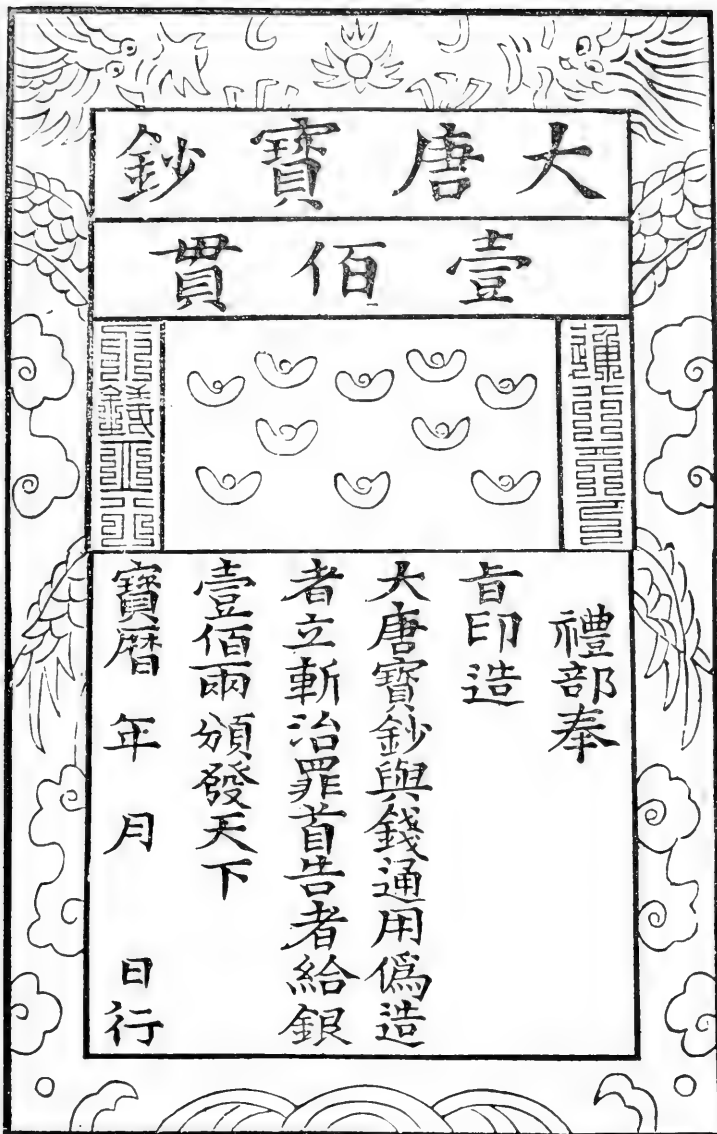 大唐寶鈔
壹佰貫
禮部奉
旨印造
大唐寶鈔與錢通用偽造
者立斬治罪首告者給銀
壹佰兩頒發天下
寶曆 年 月 日行